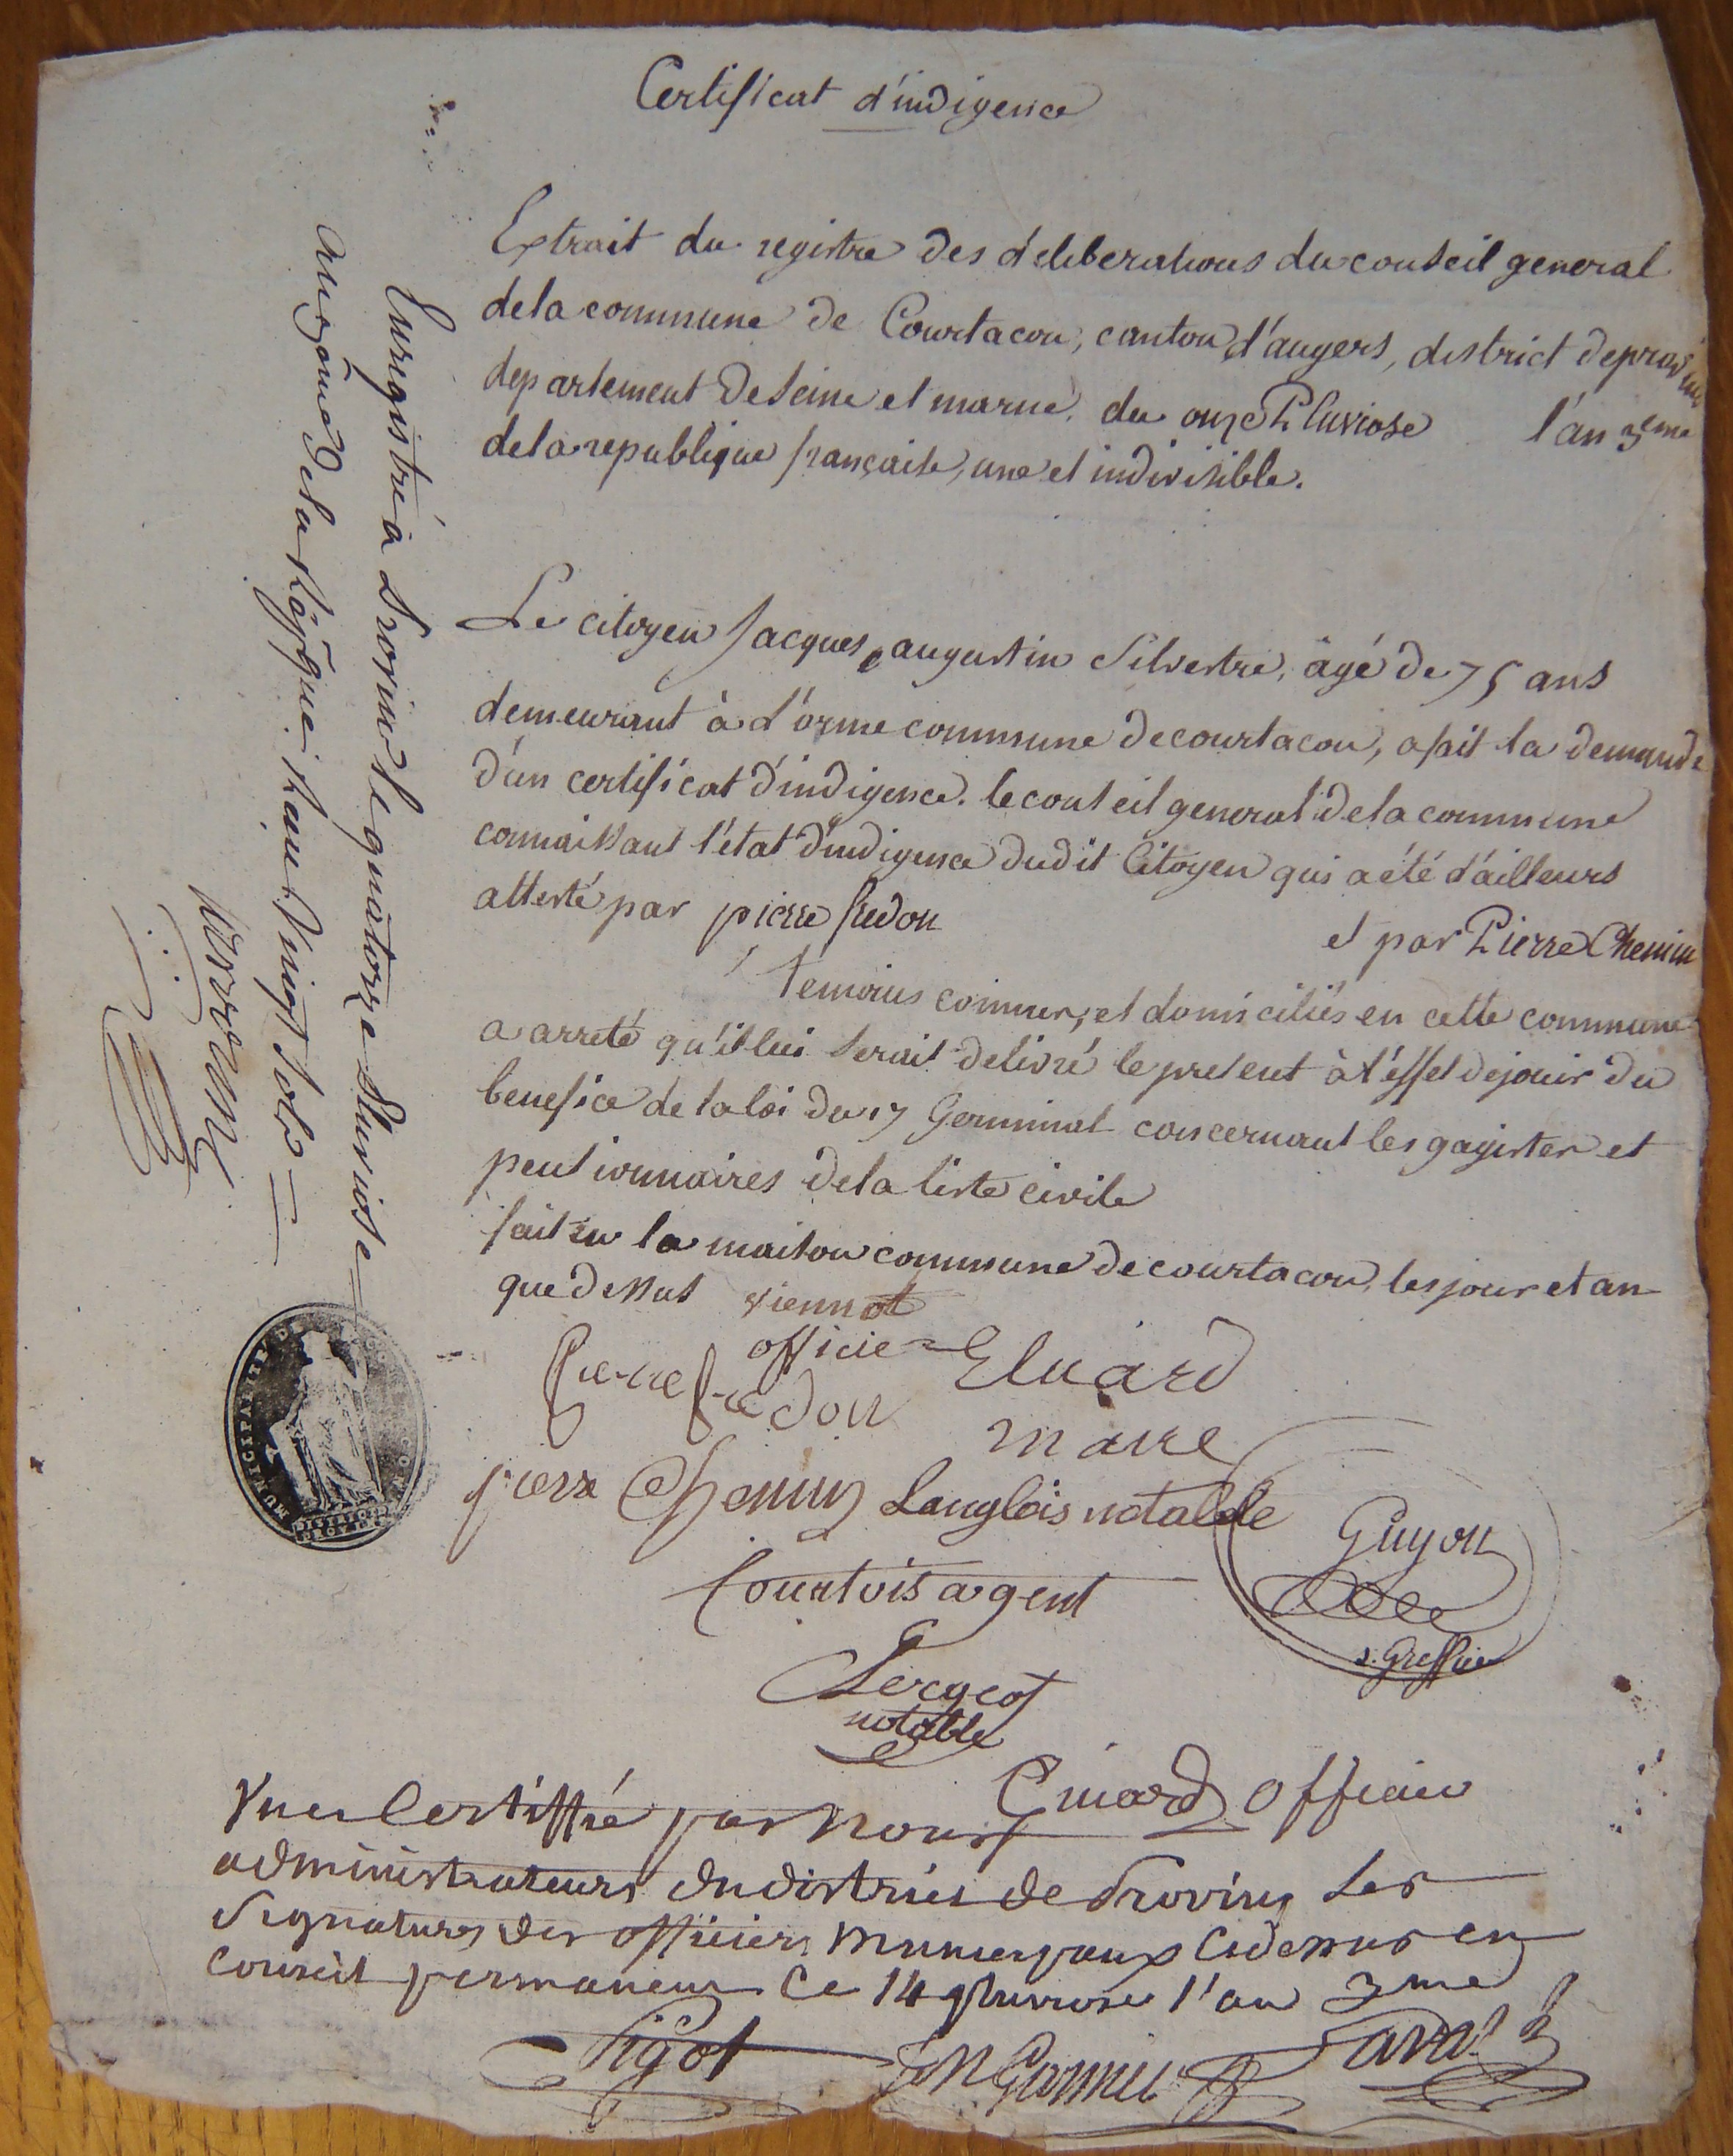 Certificat d'indigence
Extrait du registre des déliberations du conseil general
dela commune de Courtacon, canton d'augers, district deprovins
departement de Seine et marne. du onze Pluviose l'an 3eme
dela republique française, une et indivisible.
Le citoyen Jacques augustin Silvestre, âgé de 75 ans
demeurant à l'orme commune decourtacon, afait la demande
d'un certificat d'indigence. le conseil general dela commune
connaissant l'état d'indigence dudit Citoyen qui a été d'ailleurs
attesté par pierre fredon et par Pierre Chemin
temoins connus, et domiciliés en cette commune
a arreté qu'il lui serait delivré le present à l'effet dejouir du
benefice de la loi du 17 Germinal concernant les gagistes et
pensionnaires dela liste civile
fait en la maison commune decourtacon, les jour et an
que dessus viennot
officie Eluard
Pierre fredon maire
pierre Chemin Langlois notable
Guyon
Courtois agent
s. Greffier
Sergeot
notable
Guiard Officier
Vu et Certiffié par Nous
administrateurs du district de Provins Les
Signatures des officiers municipaux Cidessus en
Conseil permanent Ce 14 pluviose l'an 3me
Pigot Garnier
Enregistré à Provins le quatorze Pluviose
an 3eme de la Rép.que Reçu vingt sols
MUNICIPALITE DE
DISTRICT D
PROVINS